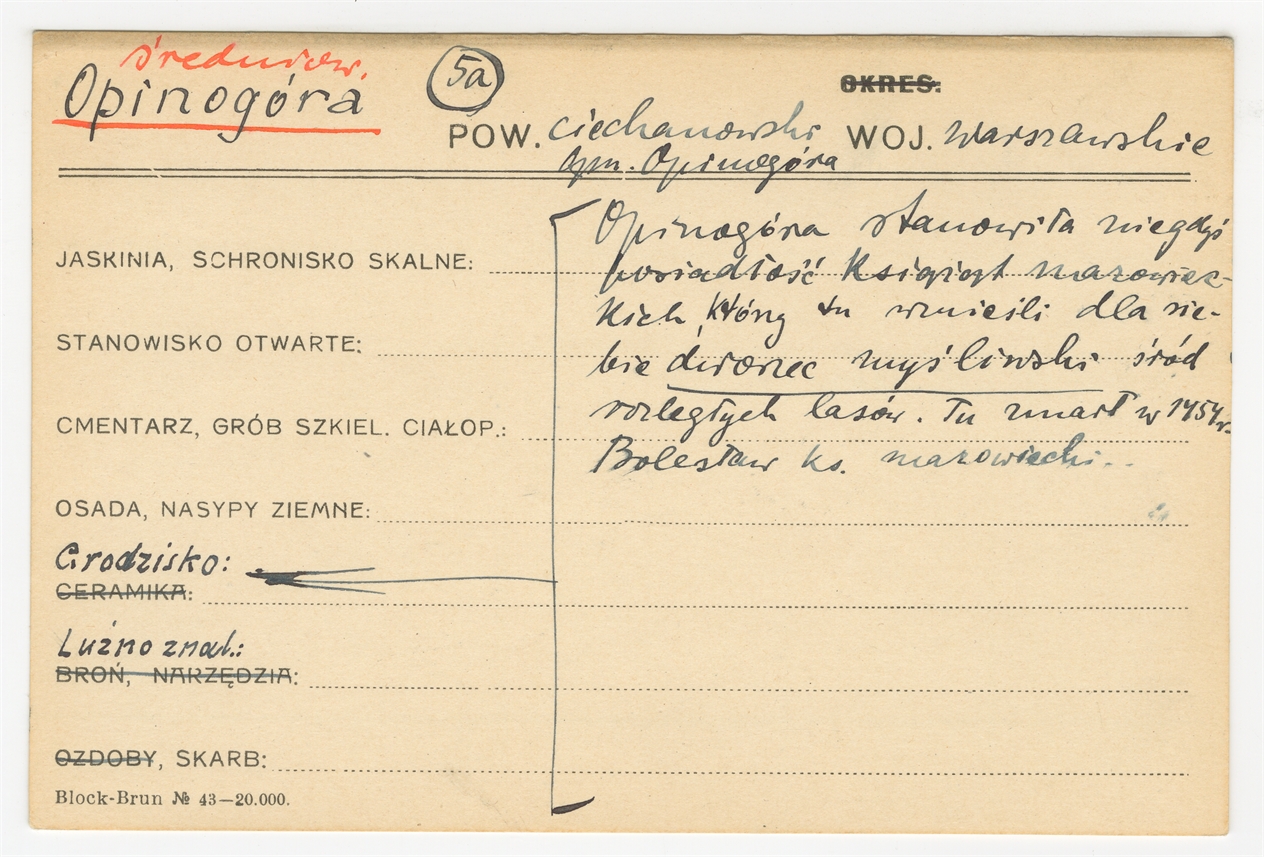 średniow.
Opinogóra
5a
OKRES.
POW. ciechanowski WOJ. Warszawskie
gm. Opinogóra
Opinogóra stanowiła niegdyś
JASKINIA, SCHRONISKO SKALNE:
posiadłość Książąt mazowiec-
kich, którzy tu wznieśli dla sie-
STANOWISKO OTWARTE:
bie dworzec myśliwski śród
rozległych lasów. Tu zmarł w 1454 r.
CMENTARZ, GRÓB SZKIEL. CIAŁOP.:
Bolesław ks. mazowiecki..
OSADA, NASYPY ZIEMNE:
Grodzisko:
CERAMIKA:
Luźno znal.:
BROŃ, NARZĘDZIA:
OZDOBY, SKARB:
Block-Brun № 43—20.000.